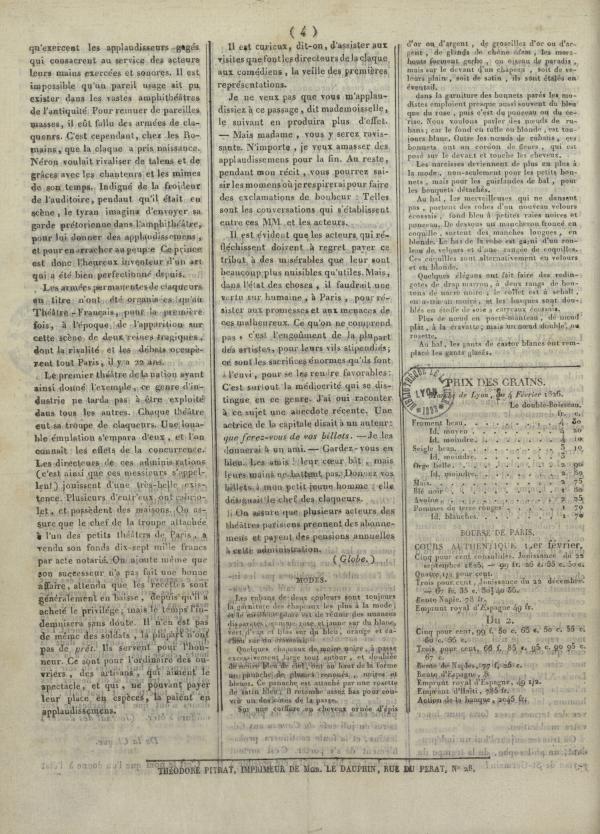 ( 4 )
qu'exercent les applaudisseurs gagés
qui consacrent au service des acteurs
leurs mains exercées et sonores. Il est
impossible qu'un pareil usage ait pu
exister dans les vastes amphithéâtres
de l'antiquité. Pour remuer de pareilles
masses, il eût fallu des armées de cla-
queurs. C'est cependant, chez les Ro-
mains, que la claque a pris naissance.
Néron voulait rivaliser de talens et de
grâces avec les chanteurs et les mimes
de son temps. Indigné de la froideur
de l'auditoire, pendant qu'il était en
scène, le tyran imagina d'envoyer sa
garde prétorienne dans l'amphithéâtre,
pour lui donner des applaudissemens,
et pour en arracher au peuple. Ce prince
est donc l'heureux inventeur d'un art
qui a été bien perfectionné depuis.
Les armées permanentes de claqueurs
en titre n'ont été organisées qu'au
Théâtre-Français, pour la première
fois, à l'époque de l'apparition sur
cette scène de deux reines tragiques,
dont la rivalité et les débats occupè-
rent tout Paris, il y a 22 ans.
Le premier théâtre de la nation ayant
ainsi donné l'exemple, ce genre d'in-
dustrie ne tarda pas à être exploité
dans tous les autres. Chaque théâtre
eut sa troupe de claqueurs. Une loua-
ble émulation s'empara d'eux, et l'on
connaît les effets de la concurrence.
Les directeurs de ces administrations
(c'est ainsi que ces messieurs s'appel-
lent) jouissent d'une très-belle exis-
tence. Plusieurs d'entr'eux ont cabrio-
let, et possèdent des maisons. On as-
sure que le chef de la troupe attachée
à l'un des petits théâtres de Paris, a
vendu son fonds dix-sept mille francs
par acte notarié. On ajoute même que
son successeur n'a pas fait une bonne
affaire, attendu que les recettes sont
généralement en baisse, depuis qu'il a
acheté le privilége; mais le temps l'in-
demnisera sans doute. Il n'en est pas
de même des soldats, la plupart n'ont
pas de prêt. Ils servent pour l'hon-
neur. Ce sont pour l'ordinaire des ou-
vriers, des artisans, qui aiment le
spectacle, et qui, ne pouvant payer
leur place en espèces, la paient en
applaudissemens.
Il est curieux, dit-on, d'assister aux
visites que font les directeurs de la claque
aux comédiens, la veille des premières
représentations.
Je ne veux pas que vous m'applau-
dissiez à ce passage, dit mademoiselle,
le suivant en produira plus d'effet.
— Mais madame, vous y serez ravis-
sante. N'importe, je veux amasser des
applaudissemens pour la fin. Au reste,
pendant mon récit, vous pourrez sai-
sir les momens où je respirerai pour faire
des exclamations de bonheur : Telles
sont les conversations qui s'établissent
entre ces MM et les acteurs.
Il est évident que les acteurs qui ré-
fléchissent doivent à regret payer ce
tribut à des misérables que leur sont
beaucoup plus nuisibles qu'utiles. Mais,
dans l'état des choses, il faudrait une
vertu sur humaine, à Paris, pour ré-
sister aux promesses et aux menaces de
ces malheureux. Ce qu'on ne comprend
pas, c'est l'engoûment de la plupart
des artistes, pour leurs vils stipendiés;
ce sont les sacrifices énormes qu'ils font
à l'envi, pour se les rendre favorables:
C'est surtout la médiocrité qui se dis-
tingue en ce genre. J'ai ouï raconter
à ce sujet une anecdote récente. Une
actrice de la capitale disait à un auteur:
que ferez-vous de vos billets. — Je les
donnerai à un ami. — Gardez-vous en
bien. Les amis! leur cœur bat, mais
leurs mains ne battent pas. Donnez vos
billets à mon petit jeune homme : elle
désignait le chef des claqueurs.
On assure que plusieurs acteurs des
théâtres parisiens prennent des abonne-
mens et payent des pensions annuelles
à cette administration.
( Globe. )
MODES.
Les rubans de deux couleurs sont toujours
la garniture des chapeaux les plus à la mode;
sur du
Quelques chapeaux de moire noire, à passe
excessivement large tout autour, et doublée
de moire bleu de ciel, ont au haut de la forme
un panache de plumes noires et
bleues. Ce panache est attaché par une rosette
de satin bleu; il retombe assez bas pour cou-
vrir un des bords de la passe.
Sur une coiffure en cheveux ornée d'épis
d'or ou d'argent, de groseilles d'or ou d'ar-
gent, de glands de chêne idem, les mara-
bouts forment gerbe, ou oiseau de paradis,
mais sur le devant d'un chapeau, soit de ve-
lours plein, soit de satin, ils sont étalés en
éventail.
dans la garniture des bonnets parés les mo-
distes emploient presque aussi souvent du bleu
que du rose, puis c'est du ponceau ou du ce-
rise. Nous voulons parler des nœuds de ru-
bans; car le fond en tulle ou blonde, est tou-
jours blanc. Outre les nœuds de rubans, ces
bonnets ont un cordon de fleurs, qui est
posé sur le devant et touche les cheveux.
Les narcisses deviennent de plus en plus à
la mode, non-seulement pour les petits bon-
nets, mais pour les guirlandes de bal, pour
les bouquets détachés.
Au bal, les merveilleuses qui ne dansent
pas, portent des robes d'un nouveau velours
écossais, fond bleu à petites raies noires et
ponceau. De dessous un mancheron froncé en
coquille, sortent des manches longues, en
blonde. Le bas de la robe est garni d'un rou-
leau de velours et d'une rangée de coquilles.
Ces coquilles sont alternativement en velours
et en blonde.
Quelques élégans ont fait faire des redin-
gotes de drap marron, à deux rangs de bou-
tons de nacre noire; le collet est à schall,
en astracan noir, et les basques sont dou-
blés en étoffe de soie à carreaux écossais.
Plus de nœud en porte-manteau, de nœud
plat, à la cravate; mais un nœud double, ou
rosette.
Au bal, les gants de castor blancs ont rem-
placé les gants glacés.
PRIX DES GRAINS.
Marché de Lyon, du 4 Février 1826.
Le double-boisseau.
fr. c.
Froment beau, 4 80
Id. moyen, 4 20
Id. moindre, 4 10
Seigle beau, 3 10
Id. moindre, 3
Orge belle, 2 90
Id. moindre, 2 80
Maïs, 2 75
Blé noir, 2 60
Avoine, 2 25
Pommes de terre rouges, 1 70
Id. blanches, 1 70
BOURSE DE PARIS.
COURS AUTHENTIQUE 1.er février.
Cinq pour cent consolidés. Jouissance du 22
septembre 1825.
Quatre 1/2 pour cent.
Trois pour cent, Jouissance du 22 décembre.
Rente Naple. 78 fr.
Emprunt royal d'Espagne 49 fr.
Du 2.
Cinq pour cent,
Trois pour cent,
Rentes de Naples, 77 f.
Rente d'Espagne, 8
Emprunt royal d'Espagne, 49 1/2.
Emprunt d'Haïti, 785 fr.
Action de la banque, 2045 fr.
THÉODORE PITRAT, IMPRIMEUR DE MGR. LE DAUPHIN, RUE DU PERAT, N° 28.